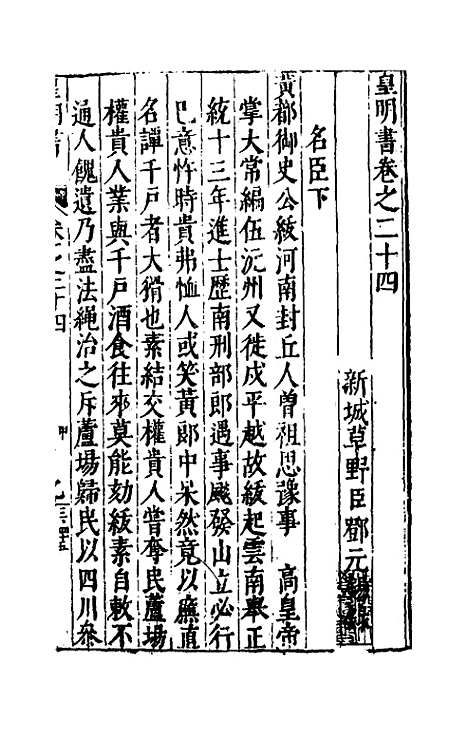 皇明書卷之二十四
新城草野臣鄧元錫
名臣下
黃都御史公紱河南封丘人曾祖思豫事　高皇帝
掌大常編伍沅州又徙戍平越故紱起雲南舉正
統十三年進士歷南刑部郎遇事颷發山立必行
巳意忤時貴弗恤人或笑黃郎中呆然竟以廉直
名譚千戶者大猾也素結交權貴人嘗奪民蘆場
權貴人業與千戶酒食往來莫能劾紱素自敕不
通人餽遺乃盡法繩治之斥蘆場歸民以四川叅